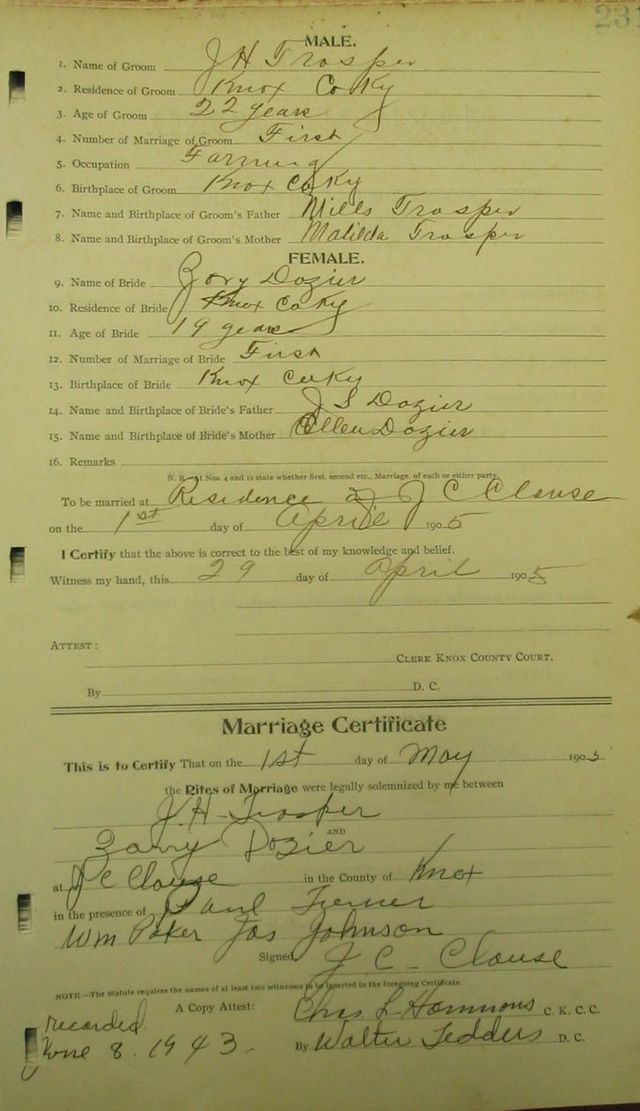 231
MALE.
1. Name of Groom J H Trosper
2. Residence of Groom Knox Co Ky
3. Age of Groom 22 years
4. Number of Marriage of Groom First
5. Occupation Farming
6. Birthplace of Groom Knox Co Ky
7. Name and Birthplace of Groom's Father Mills Trosper
8. Name and Birthplace of Groom's Mother Matilda Trosper
FEMALE.
9. Name of Bride Zory Dozier
10. Residence of Bride Knox Co Ky
11. Age of Bride 19 years
12. Number of Marriage of Bride First
13. Birthplace of Bride Knox Co Ky
14. Name and Birthplace of Bride's Father J S Dozier
15. Name and Birthplace of Bride's Mother Ellen Dozier
16. Remarks
N. B.—At Nos. 4 and 12 state whether first, second etc., Marriage, of each or either party.
To be married at Residence of J C Clouse
on the 1st day of April 1905
I Certify that the above is correct to the best of my knowledge and belief.
Witness my hand, this 29 day of April 1905
ATTEST:
CLERK KNOX COUNTY COURT.
By D. C.
Marriage Certificate
This is to Certify That on the 1st day of May 1905
the Rites of Marriage were legally solemnized by me between
J. H. Trosper
AND
Zorry Dozier
at J C Clouse in the County of Knox
in the presence of Turner
Wm Jas Johnson
Signed J. C. Clouse
NOTE.—The Statute requires the names of at least two witnesses to be inserted in the foregoing Certificate.
A Copy Attest: Chas L Hammons C. K. C. C.
recorded
June 8. 1943. By Walter Tedders D. C.